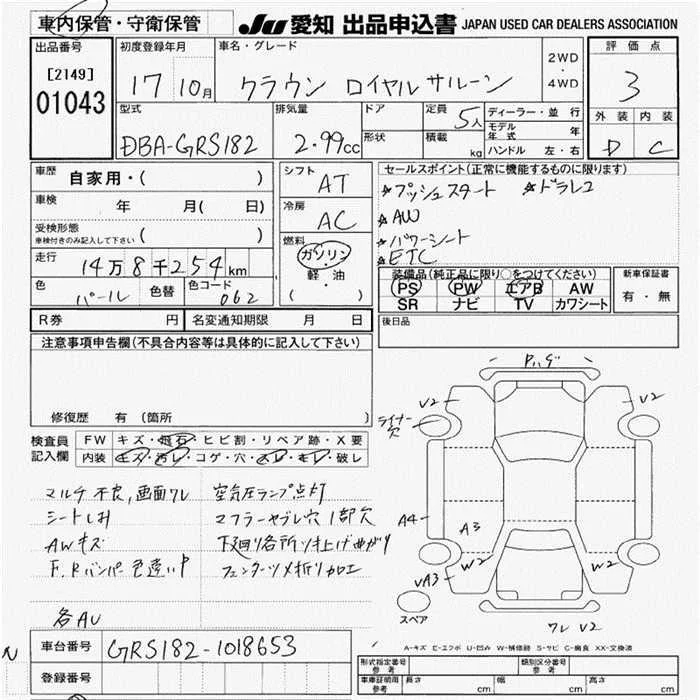 車内保管・守衛保管
JU 愛知 出品申込書 JAPAN USED CAR DEALERS ASSOCIATION
出品番号
[2149]
01043
初度登録年月
17 10月
車名・グレード
クラウン ロイヤルサルーン
2WD
・
4WD
評価点
3
外装 内装
D C
型式
DBA-GRS182
排気量
2.99cc
ドア
形状
定員
5人
積載
kg
ディーラー・並行
モデル年式 年
ハンドル 左・右
車歴
自家用・( )
車検
年 月( 日)
受検形態
車検付きのみ記入して下さい ( )
走行
14万8千254km
色
パール
色替
色コード
062
シフト
AT
冷房
AC
燃料
ガソリン
・
軽油
( )
セールスポイント(正常に機能するものに限ります)
☆プッシュスタート ☆ドラレコ
☆AW
☆パワーシート
☆ETC
装備品(純正品に限り○をつけてください)
PS PW エアB AW
SR ナビ TV カワシート
新車保証書
有・無
R券 円
名変通知期限 月 日
後日品
注意事項申告欄(不具合内容等は具体的に記入して下さい)
修復歴 有 (箇所 )
検査員
記入欄
FW キズ・飛石・ヒビ割・リペア跡・X要
内装 キズ・汚レ・コゲ・穴・スレ・キレ・破レ
マルチ不良,画面ワレ
シートしみ
AWキズ
F.Rバンパー色違い中
各AU
空気圧ランプ点灯
マフラーヤブレ穴 1部欠
下廻り各所ツ上げ曲がり
フェンダーツメ折り加工
Pハゲ
V2
V2
ライナー
欠
A4
A3
W2
W2
VA3
スペア
ワレ V2
A-キズ E-エクボ U-凹み W-補修跡 S-サビ C-腐食 XX-交換済
N
車台番号
GRS182-1018653
登録番号
形式指定番号
参考
類別区分番号
参考
車庫証明用
参考
長さ cm
幅 cm
高さ cm